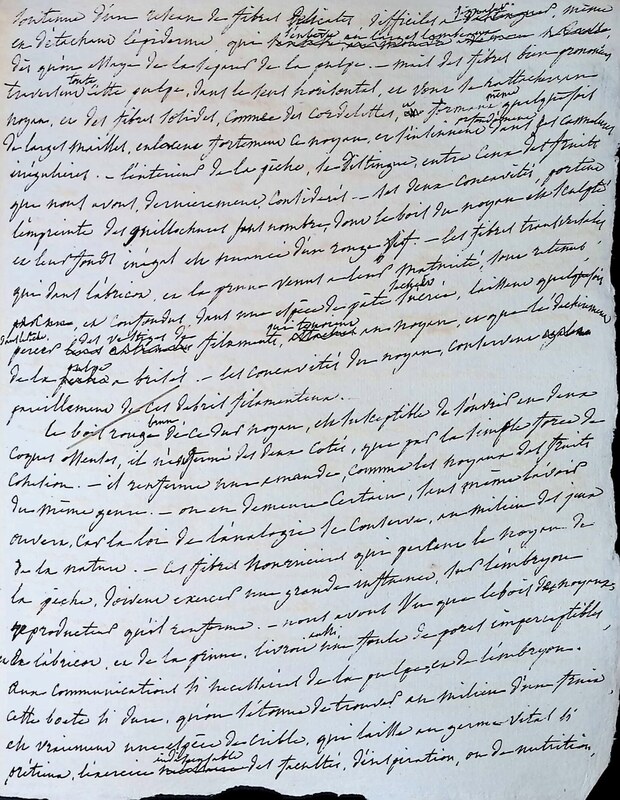 Soutenue d'un réseau de fibres délicates, difficiles a distinguer, même
en détachant l'épiderme, qui
dès qu'on essaye de la séparer de la pulpe. - mais des fibres bien prononcées
traversent toute cette pulpe, dans le sens horisontal, et vont se rattacher au
noyau, et des fibres solides, comme des cordelettes, et formant même quelquefois
de larges mailles, enlacent fortement ce noyau, et s'insinuent dans ses cannelures
irrégulieres. - l'intérieur de la pêche, se distingue, entre ceux des fruits
que nous avons, dernierement, considérés - les deux concavités, portent
l'empreinte des guillochures sans nombre, dont le bois du noyau est sculpté
et leur fonds inégal est nuancé d'un rouge vif. - les fibres transversales
qui dans l'abricot, et la prune venus a leur maturité, sont retenus
et confondus dans une espèce de pâte sucrée, laissent quelquefois
percer des vestiges de filaments, qui au noyau, et que le déchirement
de la pulpe a brisés. - les concavités du noyau, conservent
pareillement de ces débris filamenteux.
le bois rouge brun de ce dur noyau, est susceptible de s'ouvrir en deux
coques osseuses, il n'est fermé des deux cotés, que par la simple force de
cohésion. - il renferme une amande, comme les noyaux des fruits
du même genre. - on en demeure certain, sans même l'avoir
ouvert, car la loi de l'analogie se conserve, au milieu des jeux
de la nature. - Ces fibres nourriciers qui percent le noyau de
la pêche, doivent exercer une grande influence, sur l'embryon
reproducteur qu'il renferme. - nous avons vu que le bois des noyaux,
de l'abricot, et de la prune, livroit une foule de pores imperceptibles,
aux communications si nécessaires de la pulpe, et de l'embryon.
Cette boete si dure, qu'on s'étonne de trouver au milieu d'un fruit,
est vraiment une espèce de crible, qui laisse au germe vital si
prétieux, l'exercice indispensable des facultés, d'inspiration, ou de nutrition,